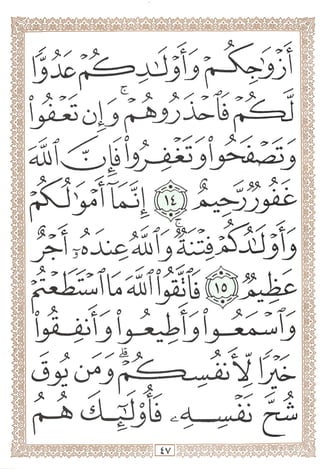 أَزْوَٰجِكُمْ وَأَوْلَٰدِكُمْ عَدُوًّا
لَّكُمْ فَٱحْذَرُوهُمْ ۚ وَإِن تَعْفُوا۟
وَتَصْفَحُوا۟ وَتَغْفِرُوا۟ فَإِنَّ ٱللَّهَ
غَفُورٌ رَّحِيمٌ ١٤ إِنَّمَآ أَمْوَٰلُكُمْ
وَأَوْلَٰدُكُمْ فِتْنَةٌ ۚ وَٱللَّهُ عِندَهُۥٓ أَجْرٌ
عَظِيمٌ ١٥ فَٱتَّقُوا۟ ٱللَّهَ مَا ٱسْتَطَعْتُمْ
وَٱسْمَعُوا۟ وَأَطِيعُوا۟ وَأَنفِقُوا۟
خَيْرًا لِّأَنفُسِكُمْ ۗ وَمَن يُوقَ
شُحَّ نَفْسِهِۦ فَأُو۟لَٰٓئِكَ هُمُ
٤٧